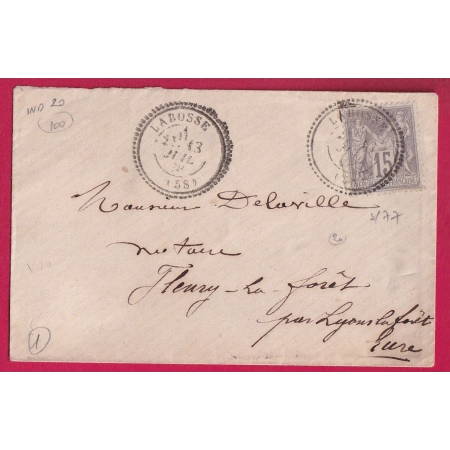 IND 20
100
LABOSSE
1
13
JUIL
(58)
LABOSSE
15
s/77
20
Monsieur Delaville
notaire
Fleury-la-forêt
par Lyons la forêt
Eure
1